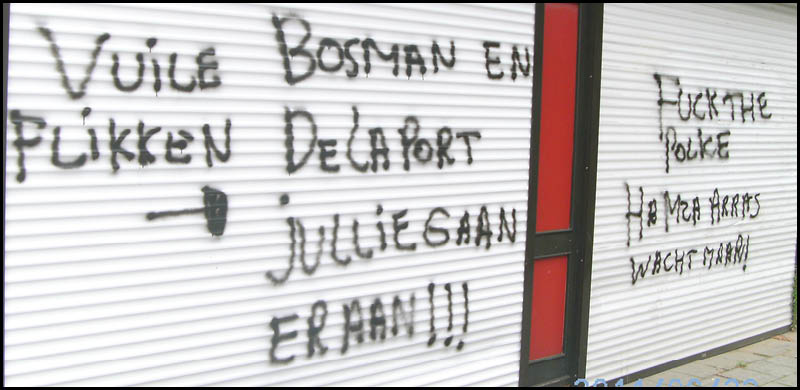 VUILE
FLIKKEN
BOSMAN EN
DELAPORT
JULLIE GAAN
ER AAN!!!
FUCK THE
POLICE
HAMZA ARRAS
WACHT MAAR!